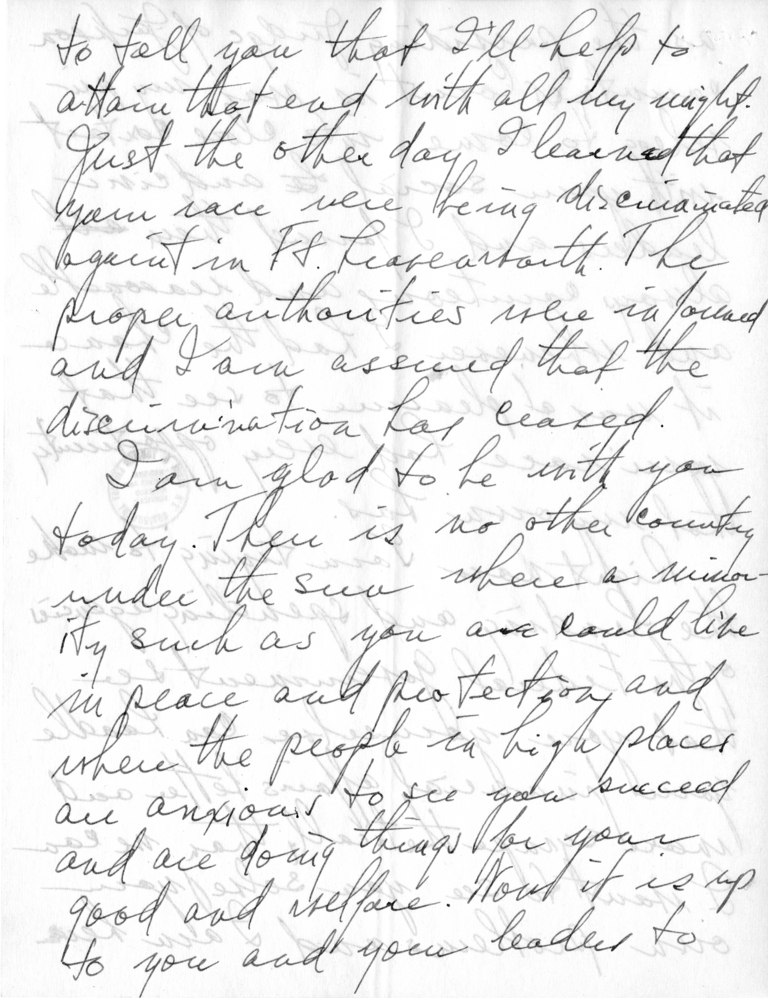 to tell you that I'll help to
attain that end with all my might.
Just the other day I learned that
your race were being discriminated
againt in Ft. Leavenworth. The
proper authorities were informed
and I am assured that the
discrimination has ceased.
I am glad to be with you
today. There is no other country
under the sun where a minor-
ity such as you are could live
in peace and protection and
where the people in high places
are anxious to see you succeed
and are doing things for your
good and welfare. Now it is up
to you and your leaders to